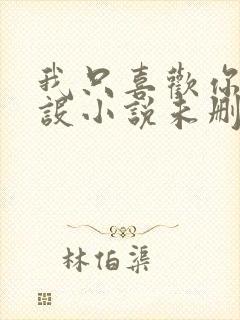 我只喜歡你
設小說未刪
林伯渠